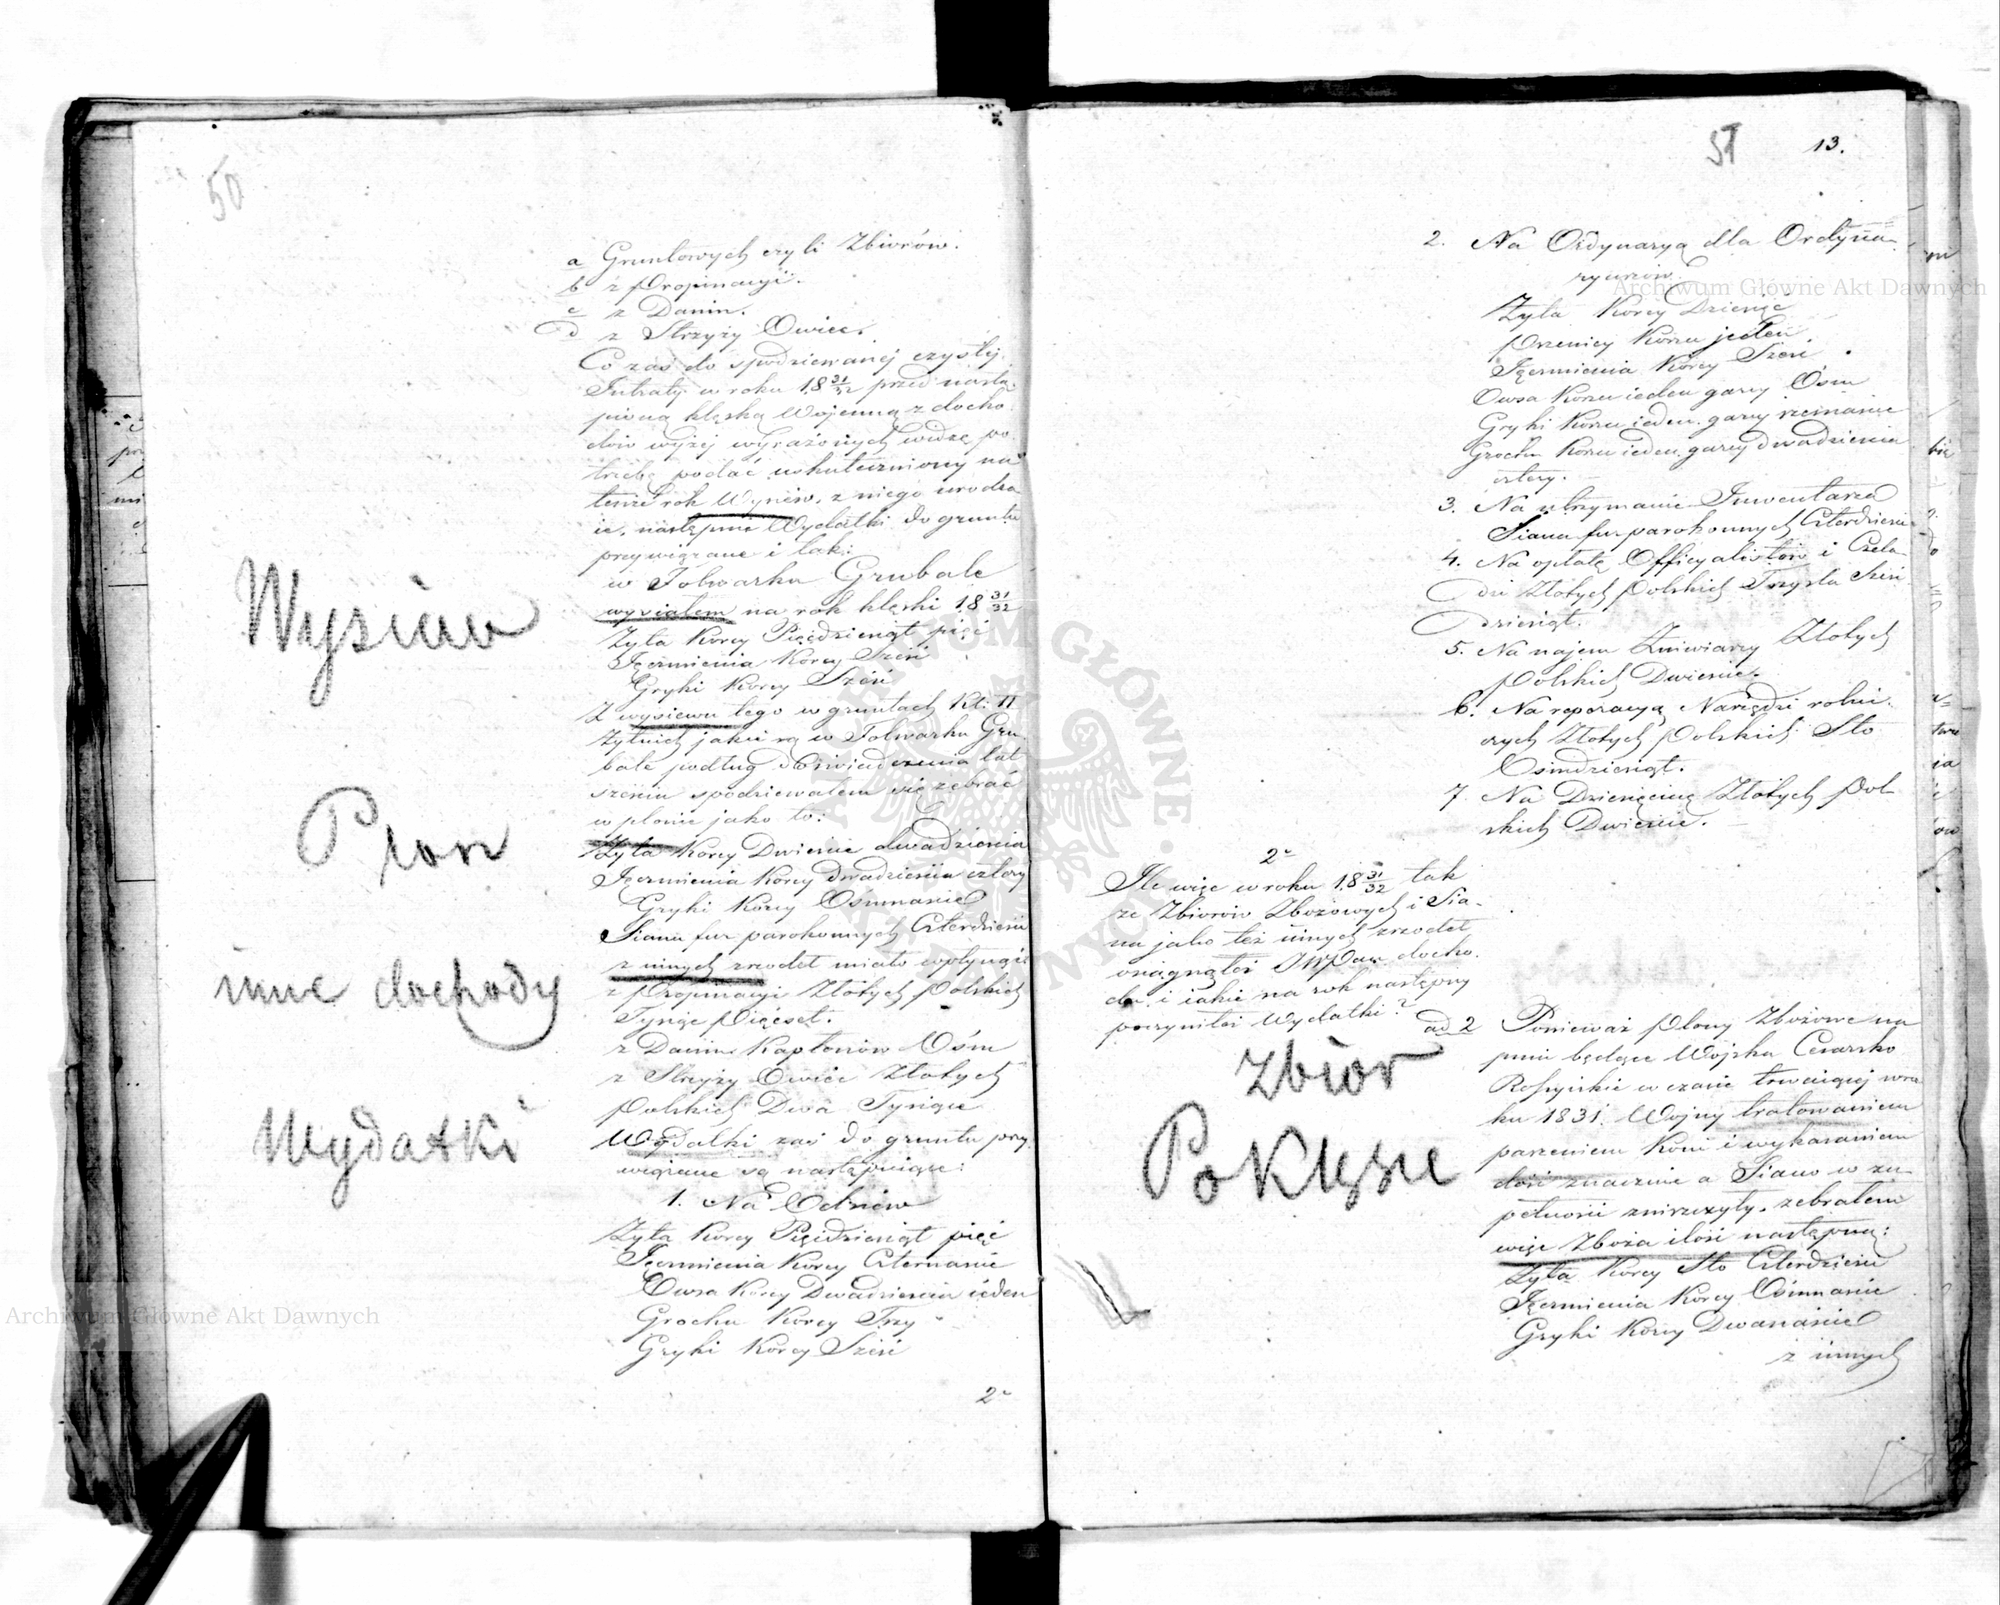 50
a Gruntowych czyli Zbiorów.
b z Propinacyi.
c z Danin.
d z Strzyży Owiec.
Co zaś do spodziewanej czystej
Intraty w roku 18 31/32 przed nastą-
pioną klęską Wojenną z docho-
dów wyżej wyrażonych widzę po-
trzebę podać uskuteczniony na
tenże rok Wysiew, z niego urodza-
ie, następnie Wydatki do gruntu
przywiązane i tak:
w Folwarku Grubale
wysiałem na rok klęski 18 31/32
Żyta Korcy Pięćdziesiąt pięć
Jęczmienia Korcy Sześć
Gryki Korcy Sześć
Z wysiewu tego w gruntach Kl: II
Żytnich jakie są w Folwarku Gru-
bale podług doświadczenia lat
spodziewałem się zebrać
w plonie jako to:
Żyta Korcy Dwieście dwadzieścia
Jęczmienia Korcy dwadzieścia cztery
Gryki Korcy Ośmnaście
Siana fur parokonnych Czterdzieści
z innych zrzodeł miało wpłynąć
z Propinacyi Złotych Polskich
Tysiąc Pięćset.
z Danin Kapłonów Ośm
z Strzyży Owiec Złotych
Polskich Dwa Tysiące
Wydatki zaś do gruntu przy-
wiązane są następujące:
1. Na Odsiew
Żyta Korcy Pięćdziesiąt pięć
Jęczmienia Korcy Czternaście
Owsa Korcy Dwadzieścia ieden
Grochu Korcy Trzy
Gryki Korcy Sześć
2
Wysiew
Plon
inne dochody
Wydatki
51 13.
2. Na Ordynaryą dla Ordyna-
ryuszów
Żyta Korcy Dziesięć
Pszenicy Korzec jeden
Jęczmienia Korcy Sześć
Owsa Korzec ieden garcy Ośm
Gryki Korzec ieden garcy
Grochu Korzec ieden garcy dwadzieścia
cztery.
3. Na utrzymanie Inwentarza
Siana fur parokonnych Czterdzieści
4. Na opłatę Officyalistów i Czela-
dzi Złotych Polskich Trzysta Sześć-
dziesiąt.
5. Na najem Żniwiarzy Złotych
Polskich Dwieście.
6. Na reperacyą Narzędzi rolni-
czych Złotych Polskich Sto
Ośmdziesiąt.
7. Na Dziesięcinę Złotych Pol-
skich Dwieście.
2
Ile więc w roku 18 31/32 tak
ze Zbiorów Zbożowych i Sia-
na jako też innych zrzodeł
osiągnąłeś JWPan docho-
du i iakie na rok następny
poczyniłeś Wydatki?
Zbiór
Po Klęsce
ad 2 Ponieważ Plony Zbożowe na
pniu będące Wojska Cesarsko
Rossyiskie w czasie trwaiącej w ro-
ku 1831. Wojny tratowaniem
paszeniem Koni i wykaszaniem
dość znacznie a Siano w zu-
pełności zniszczyły, zebrałem
więc Zboża ilość następną:
Żyta Korcy Sto Czterdzieści
Jęczmienia Korcy Ośmnaście
Gryki Korcy Dwanaście
z innych
Archiwum Główne Akt Dawnych
Archiwum Główne Akt Dawnych